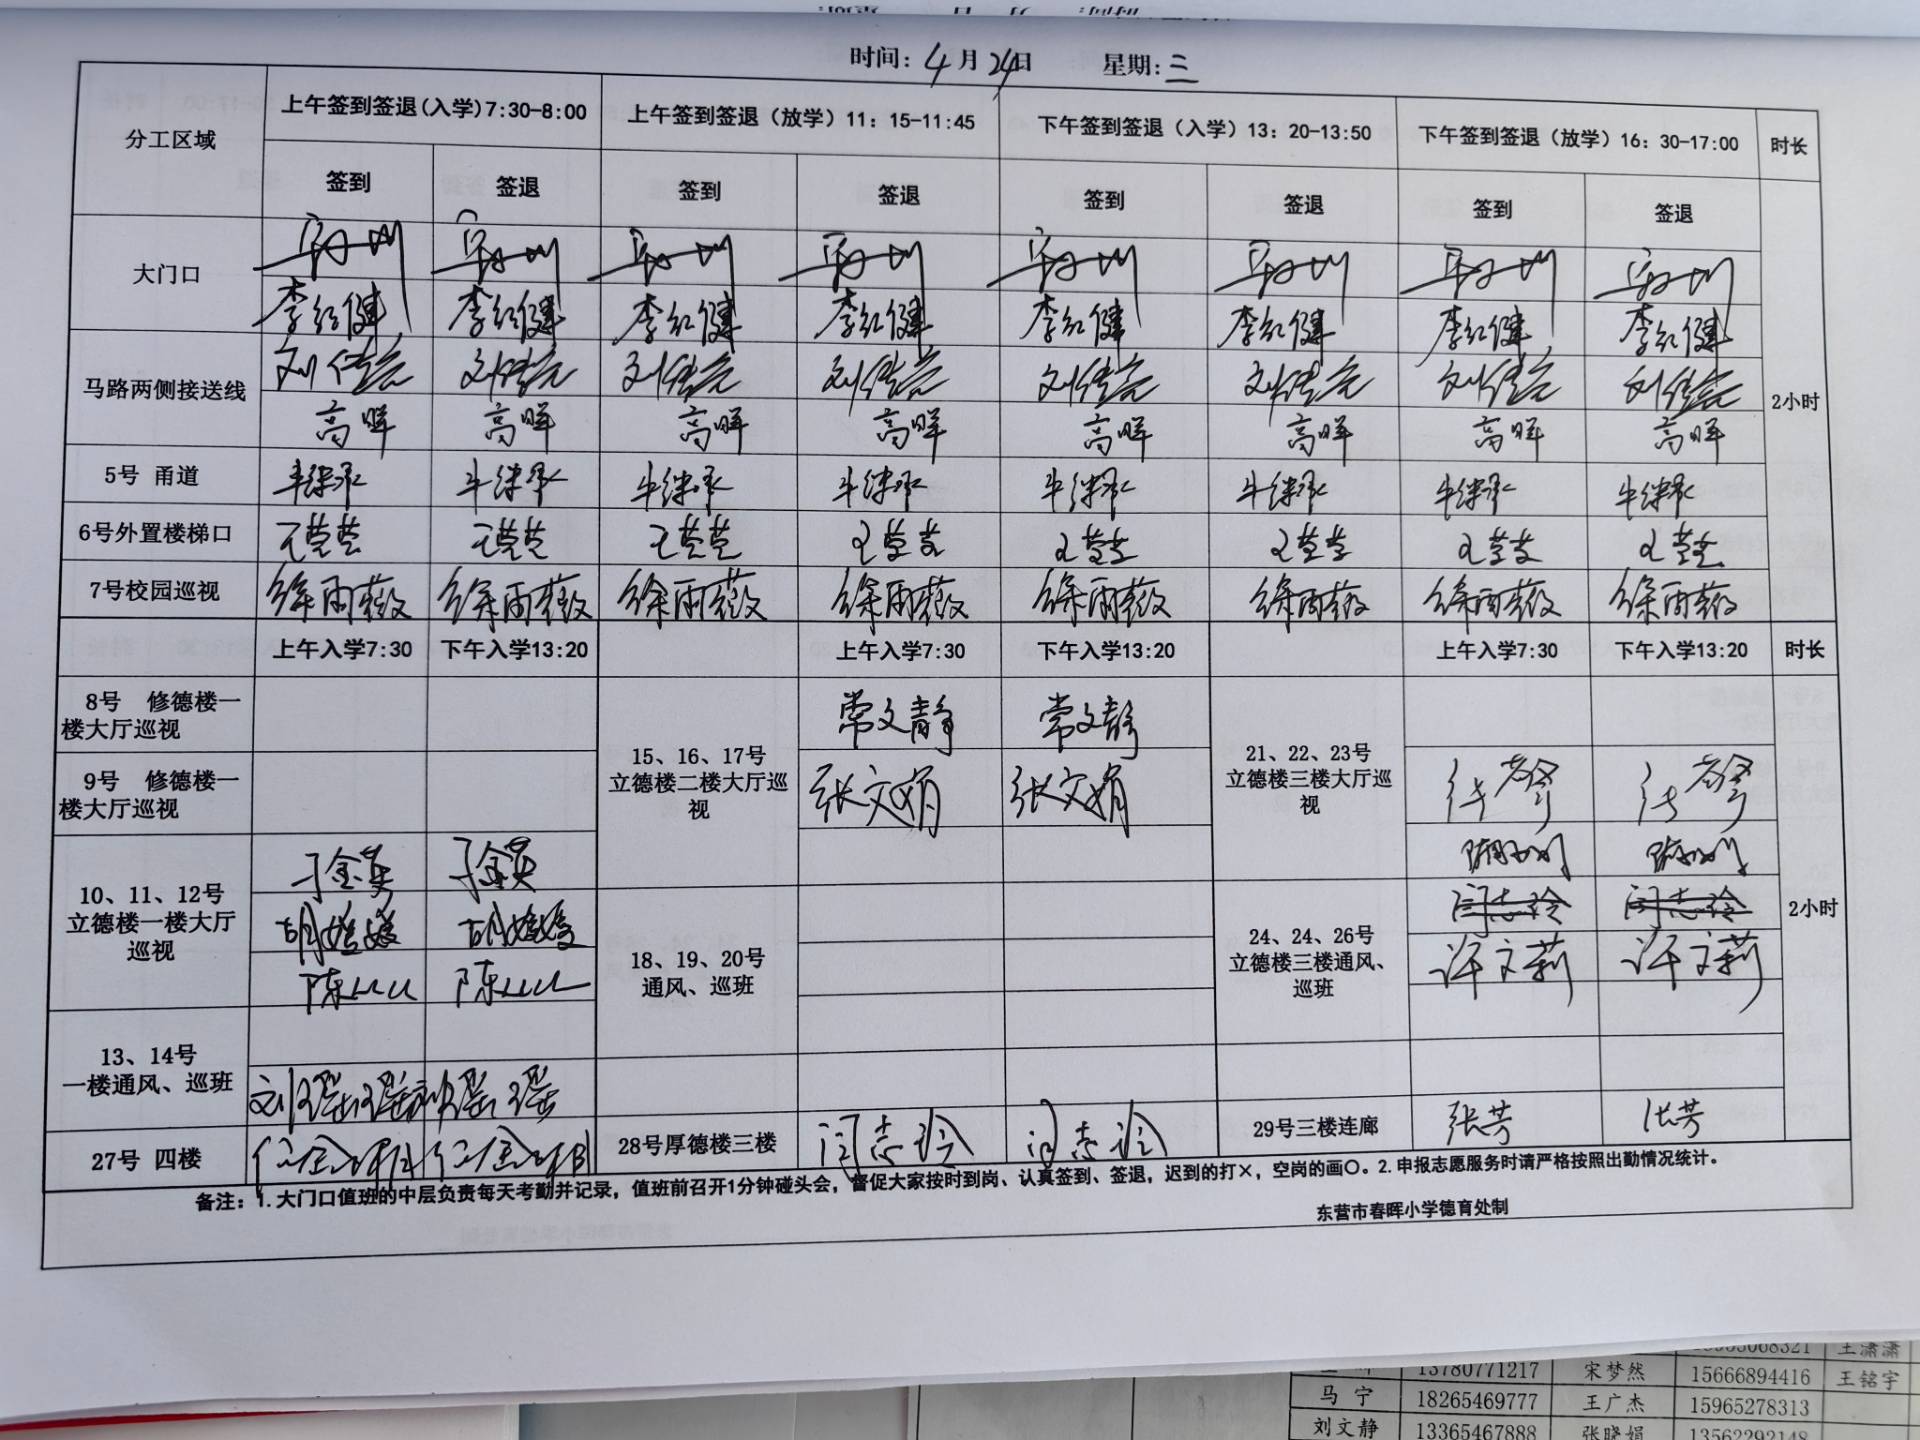 时间: 4月24日 星期: 三
分工区域 上午签到签退(入学)7:30-8:00 上午签到签退（放学）11：15-11:45 下午签到签退（入学）13：20-13:50 下午签到签退（放学）16：30-17:00 时长
签到 签退 签到 签退 签到 签退 签到 签退
大门口
李红健 李红健 李红健 李红健 李红健 李红健 李红健 李红健
马路两侧接送线 2小时
高晖 高晖 高晖 高晖 高晖 高晖 高晖 高晖
5号 甬道 牛继承 牛继承 牛继承 牛继承 牛继承 牛继承 牛继承 牛继承
6号外置楼梯口
7号校园巡视 徐雨薇 徐雨薇 徐雨薇 徐雨薇 徐雨薇 徐雨薇 徐雨薇 徐雨薇
上午入学7:30 下午入学13:20 上午入学7:30 下午入学13:20 上午入学7:30 下午入学13:20 时长
8号 修德楼一
楼大厅巡视
常文静 常文静
9号 修德楼一
楼大厅巡视
15、16、17号
立德楼二楼大厅巡
视
张文娟 张文娟
21、22、23号
立德楼三楼大厅巡
视
10、11、12号
立德楼一楼大厅
巡视
刁金英 刁金英
18、19、20号
通风、巡班
24、24、26号
立德楼三楼通风、
巡班
闫志玲 闫志玲
许文莉 许文莉
2小时
13、14号
一楼通风、巡班
27号 四楼
28号厚德楼三楼 闫志玲 闫志玲
29号三楼连廊 张芳 张芳
备注：1.大门口值班的中层负责每天考勤并记录，值班前召开1分钟碰头会，督促大家按时到岗、认真签到、签退，迟到的打×，空岗的画〇。2.申报志愿服务时请严格按照出勤情况统计。
东营市春晖小学德育处制
王潇潇
13780771217 宋梦然 15666894416 王铭宇
马 宁 18265469777 王广杰 15965278313
刘文静 13365467888 张晓娟 13562292148